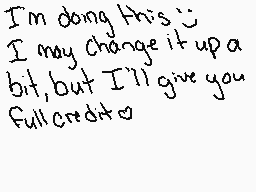 I'm doing this :)
I may change it up a
bit, but I'll give you
full credit ♡